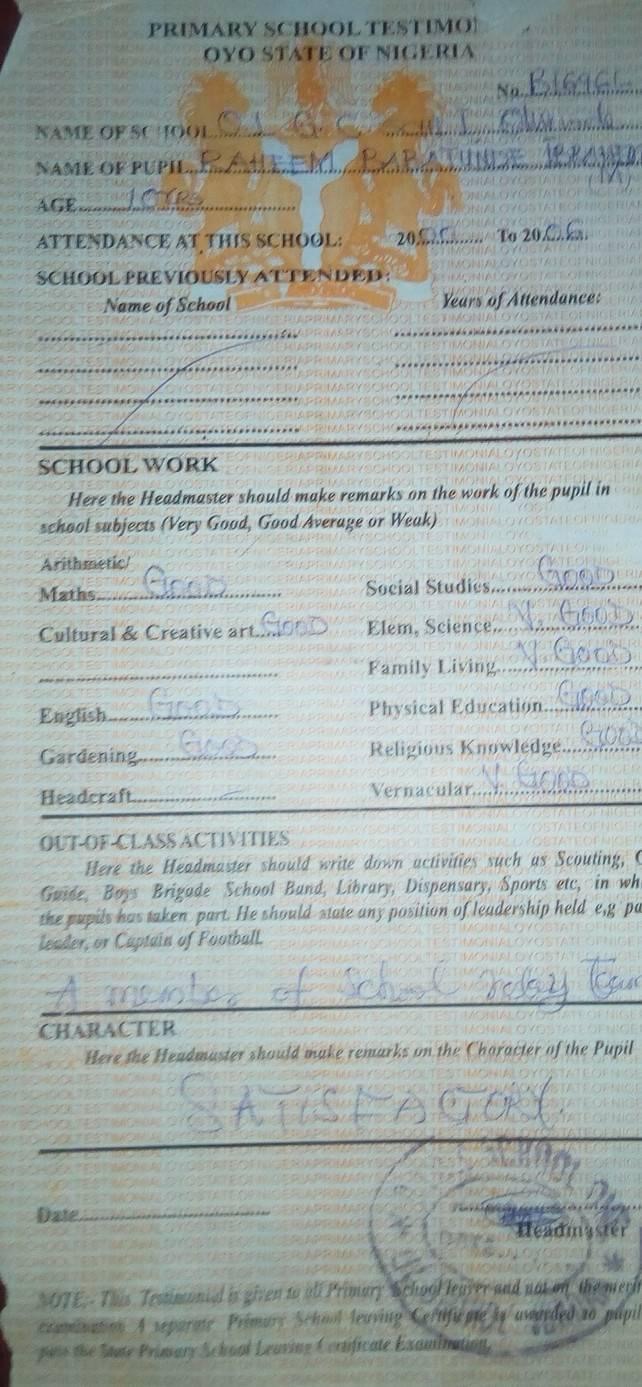 PRIMARY SCHOOL TESTIMO
OYO STATE OF NIGERIA
No. B1696
NAME OF SCHOOL
NAME OF PUPIL RAHEEM BABATUNDE
(M)
AGE 10YRS
ATTENDANCE AT THIS SCHOOL: 2000 To 2006
SCHOOL PREVIOUSLY ATTENDED:
Name of School Years of Attendance:
SCHOOL WORK
Here the Headmaster should make remarks on the work of the pupil in
school subjects (Very Good, Good Average or Weak)
Arithmetic/
Maths GOOD Social Studies GOOD
Cultural & Creative art GOOD Elem, Science V. GOOD
Family Living V. GOOD
English GOOD Physical Education GOOD
Gardening GOOD Religious Knowledge GOOD
Headcraft - Vernacular V. GOOD
OUT-OF-CLASS ACTIVITIES
Here the Headmaster should write down activities such as Scouting, G
Guide, Boys Brigade School Band, Library, Dispensary, Sports etc, in wh
the pupils has taken part. He should state any position of leadership held e,g pa
leader, or Captain of Football.
A member of School relay team
CHARACTER
Here the Headmaster should make remarks on the Character of the Pupil
SATISFACTORY.
Date
Headmaster
NOTE:- This Testimonial is given to all Primary School leaver and not on the merit
examination A separate Primary School leaving Certificate is awarded to pupil
pass the State Primary School Leaving Certificate Examination.